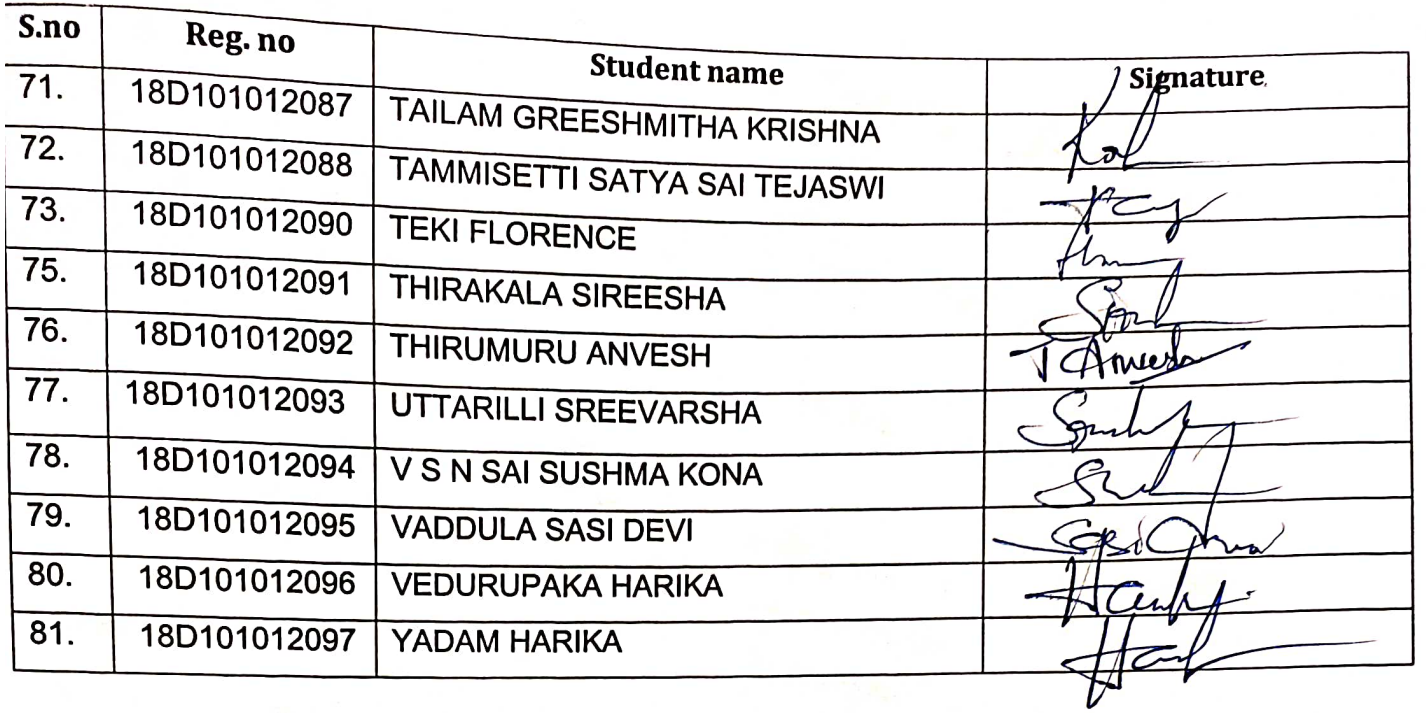 S.no Reg. no Student name Signature
71. 18D101012087 TAILAM GREESHMITHA KRISHNA
72. 18D101012088 TAMMISETTI SATYA SAI TEJASWI
73. 18D101012090 TEKI FLORENCE
75. 18D101012091 THIRAKALA SIREESHA
76. 18D101012092 THIRUMURU ANVESH T Anvesh
77. 18D101012093 UTTARILLI SREEVARSHA
78. 18D101012094 V S N SAI SUSHMA KONA
79. 18D101012095 VADDULA SASI DEVI
80. 18D101012096 VEDURUPAKA HARIKA
81. 18D101012097 YADAM HARIKA